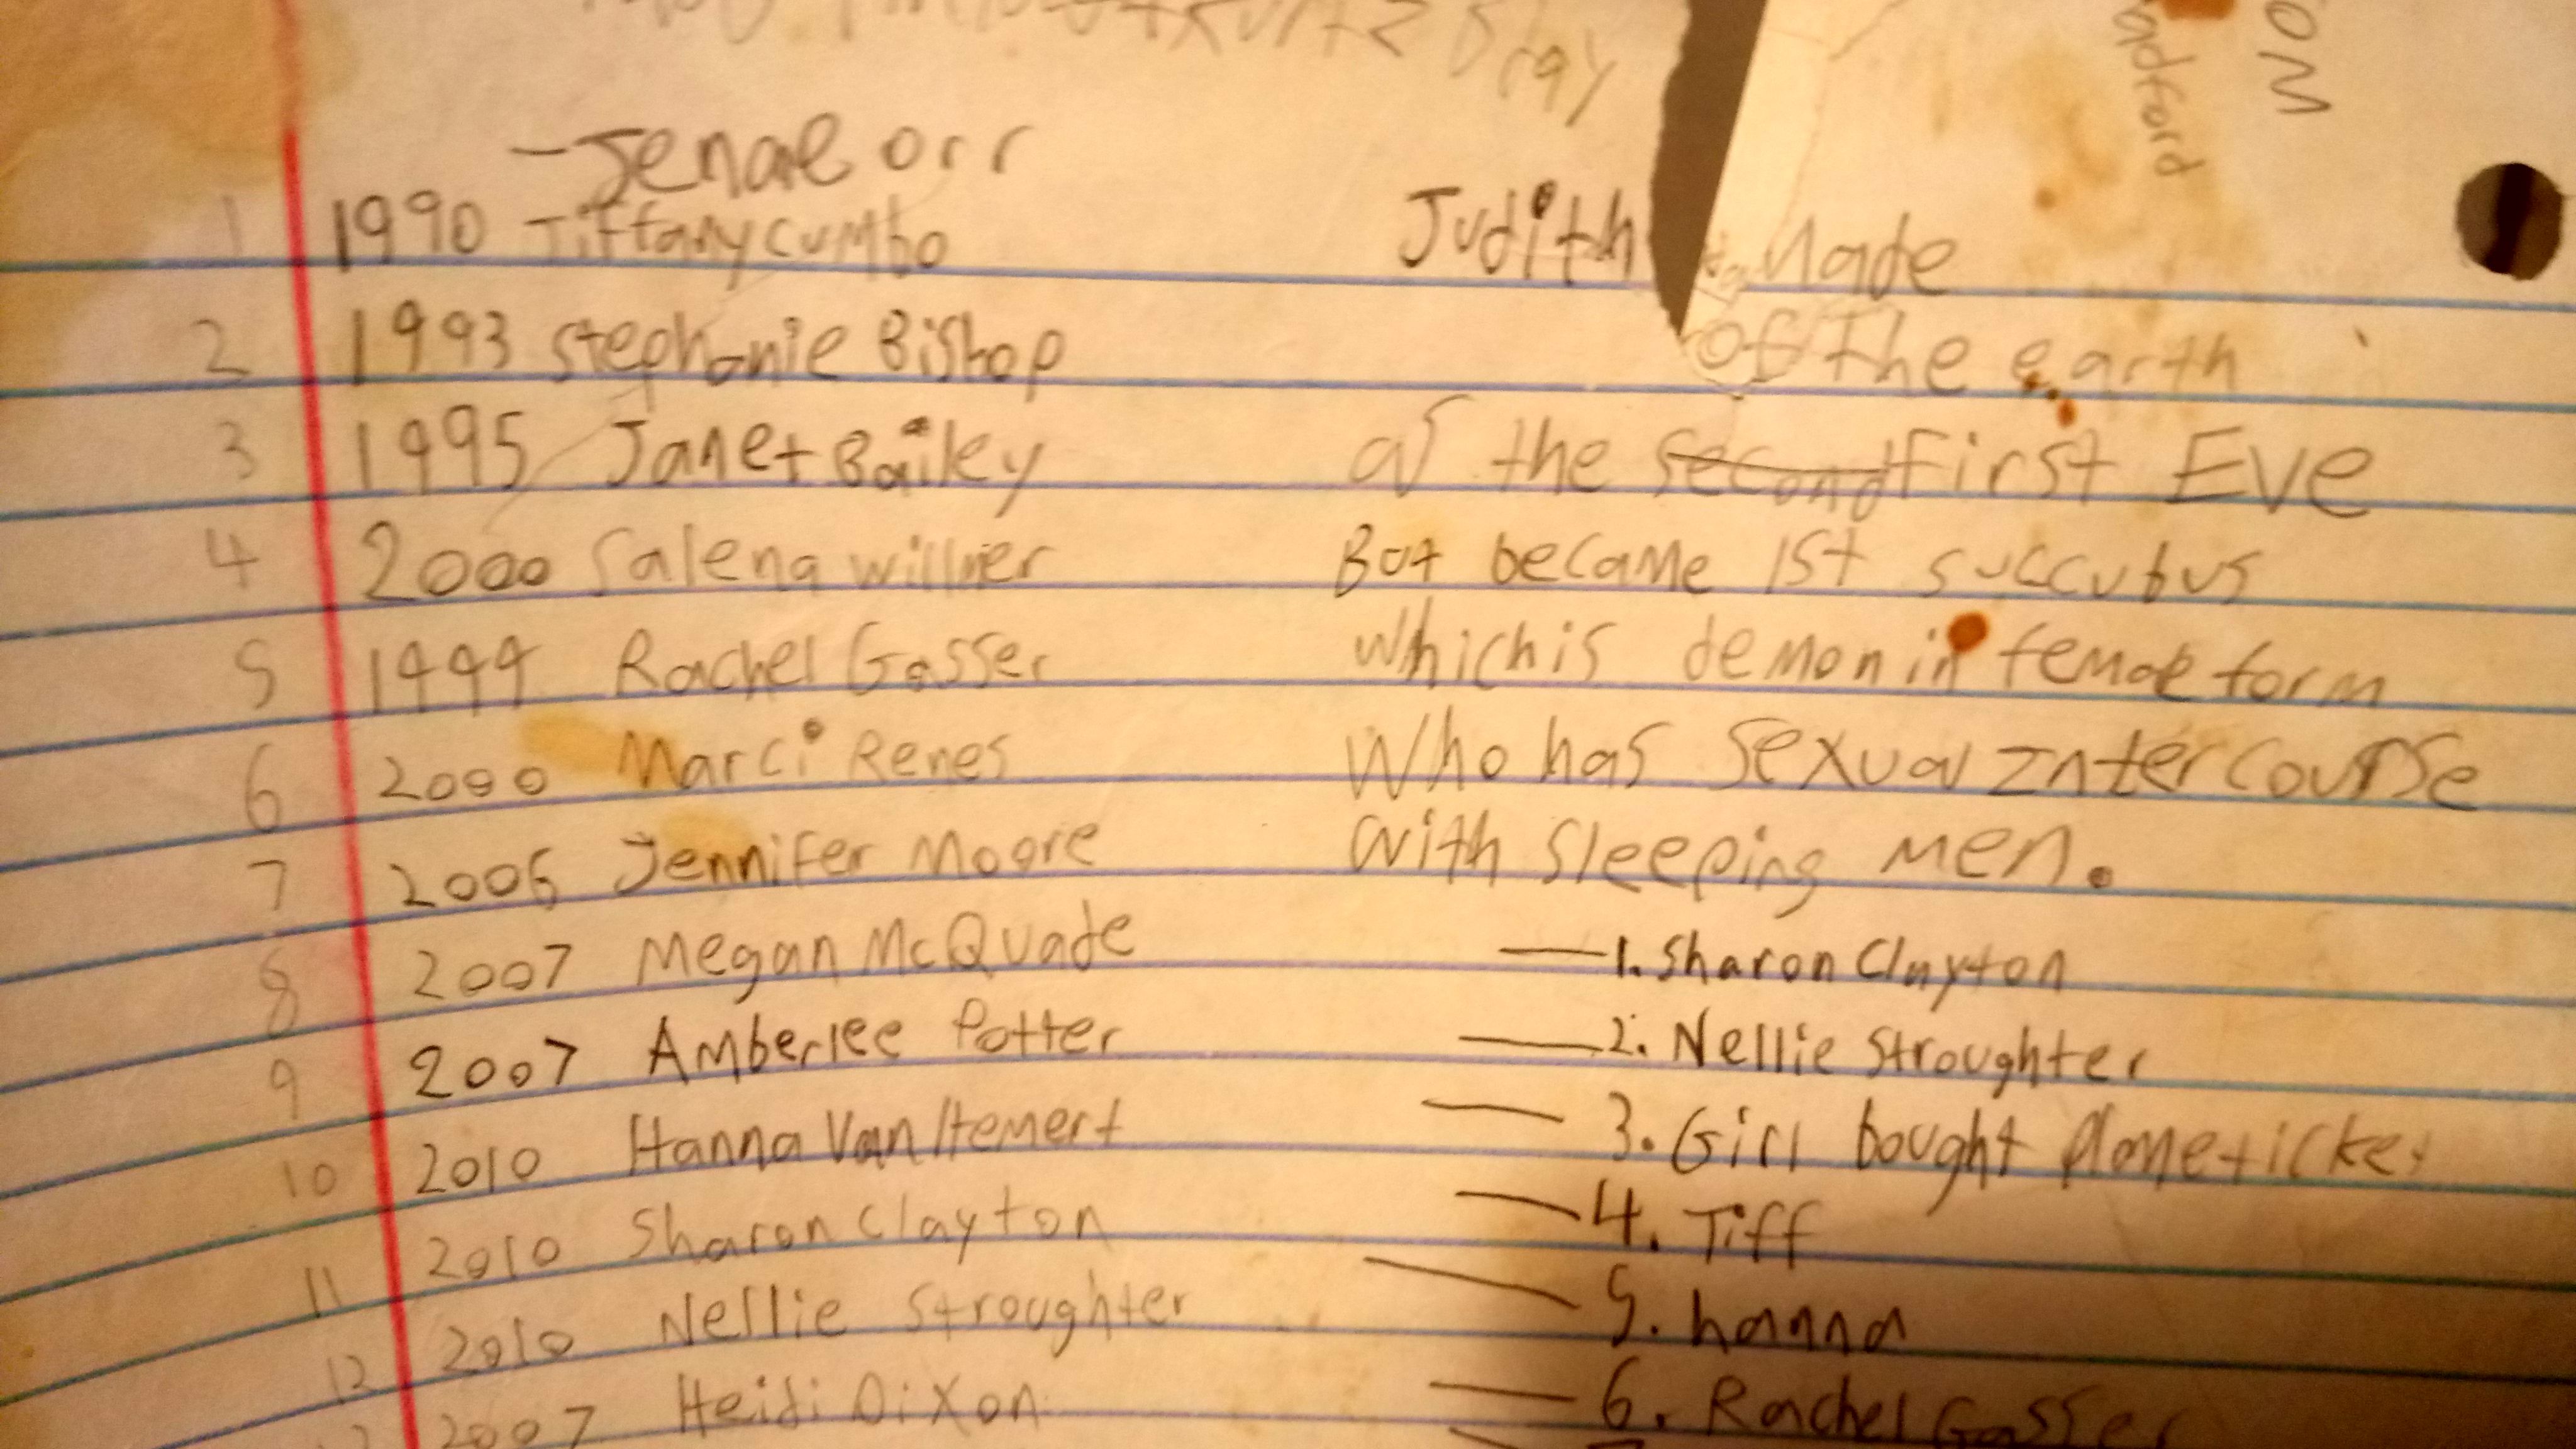 Bray
OM
adford
-Jenae orr
1 1990 Tiffany Cumbo
2 1993 Stephanie Bishop
3 1995 Janet Bailey
4 2000 Salena Willmer
5 1999 Rachel Gasser
6 2000 Marci Renes
7 2006 Jennifer Moore
8 2007 Megan McQuade
9 2007 Amberlee Potter
10 2010 Hanna VanHemert
11 2010 Sharon Clayton
12 2010 Nellie Stroughter
2007 Heidi Dixon
Judith Made
of the earth
as the second First Eve
But became 1st succubus
which is demon in female form
Who has sexual Intercourse
with sleeping men.
1. Sharon Clayton
2. Nellie Stroughter
3. Girl bought planeticket
4. Tiff
5. hanna
6. Rachel Gasser